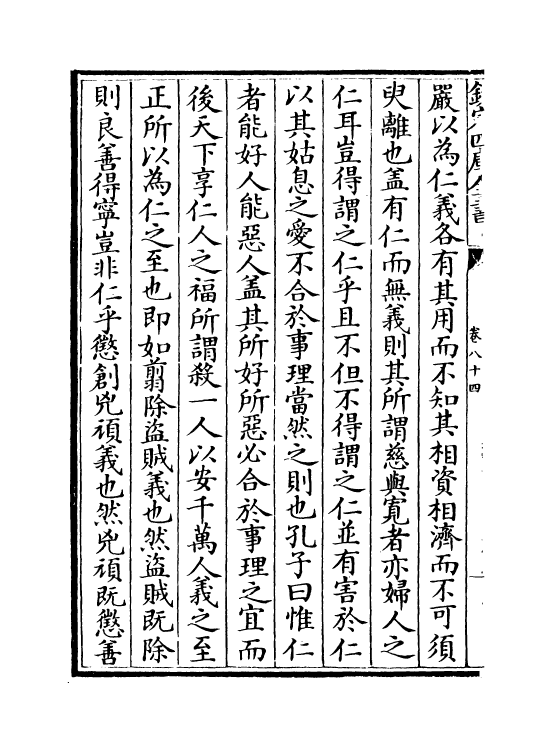 欽定四庫全書
卷八十四
嚴以為仁義各有其用而不知其相資相濟而不可須
臾離也盖有仁而無義則其所謂慈與寛者亦婦人之
仁耳豈得謂之仁乎且不但不得謂之仁並有害於仁
以其姑息之愛不合於事理當然之則也孔子曰惟仁
者能好人能惡人盖其所好所惡必合於事理之宜而
後天下享仁人之福所謂殺一人以安千萬人義之至
正所以為仁之至也即如翦除盜賊義也然盜賊既除
則良善得寧豈非仁乎懲創兇頑義也然兇頑既懲善